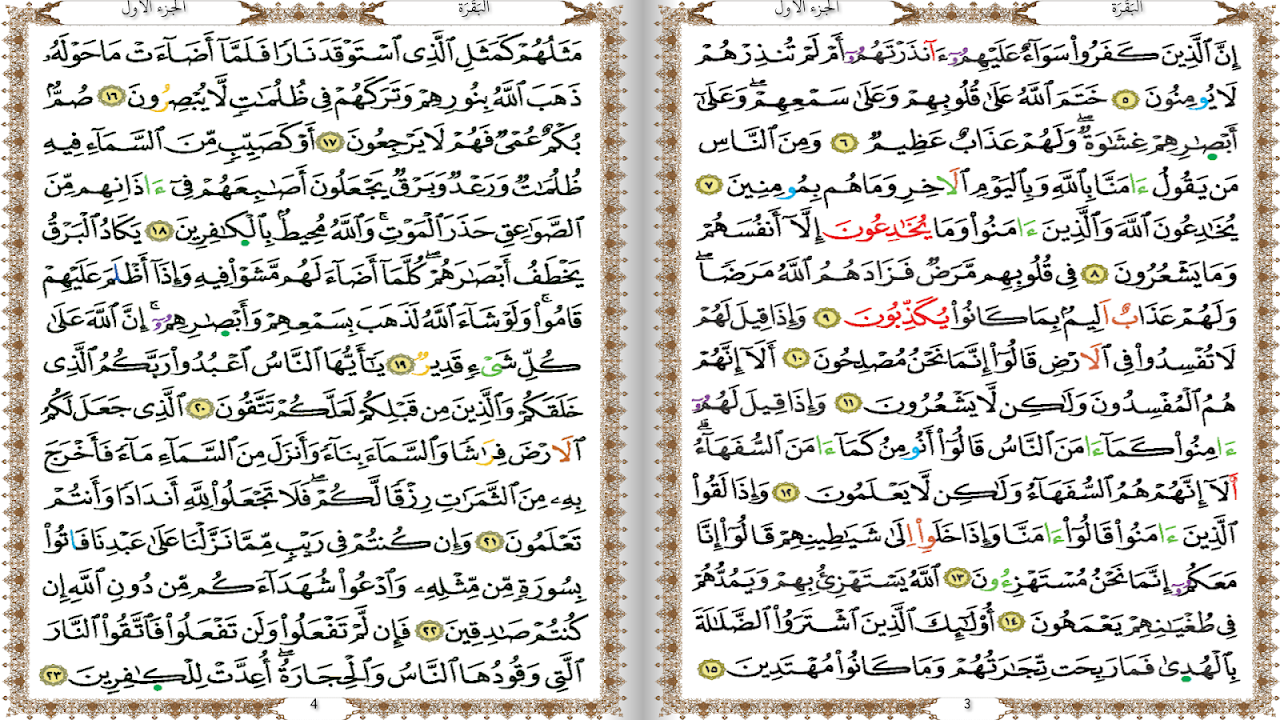 البَقَرَة الجزء الاول
إِنَّ اَ۬لذِينَ كَفَرُواْ سَوَآءٌ عَلَيْهِمُۥٓ ءَآنذَرْتَهُمُۥٓ أَمْ لَمْ تُنذِرْهُمْ
لَا يُومِنُونَ ٥ خَتَمَ اَ۬للَّهُ عَلَىٰ قُلُوبِهِمْ وَعَلَىٰ سَمْعِهِمْۖ وَعَلَىٰٓ
أَبْصَٰرِهِمْ غِشَٰوَةٞۖ وَلَهُمْ عَذَابٌ عَظِيمٞ ٦ وَمِنَ اَ۬لنَّاسِ
مَنْ يَّقُولُ ءَامَنَّا بِاللَّهِ وَبِالْيَوْمِ اِ۬لَاخِرِ وَمَا هُم بِمُومِنِينَ ٧
يُخَٰدِعُونَ اَ۬للَّهَ وَالذِينَ ءَامَنُواْ وَمَا يُخَٰدِعُونَ إِلَّآ أَنفُسَهُمْ
وَمَا يَشْعُرُونَ ٨ فِي قُلُوبِهِم مَّرَضٞ فَزَادَهُمُ اُ۬للَّهُ مَرَضاٗۖ
وَلَهُمْ عَذَابٌ اَلِيمُۢ بِمَا كَانُواْ يُكَذِّبُونَ ٩ وَإِذَا قِيلَ لَهُمْ
لَا تُفْسِدُواْ فِي اِ۬لَارْضِ قَالُوٓاْ إِنَّمَا نَحْنُ مُصْلِحُونَ ١٠ أَلَآ إِنَّهُمْ
هُمُ اُ۬لْمُفْسِدُونَ وَلَٰكِن لَّا يَشْعُرُونَ ١١ وَإِذَا قِيلَ لَهُمُۥٓ
ءَامِنُواْ كَمَآ ءَامَنَ اَ۬لنَّاسُ قَالُوٓاْ أَنُومِنُ كَمَآ ءَامَنَ اَ۬لسُّفَهَآءُۖ
أَلَآ إِنَّهُمْ هُمُ اُ۬لسُّفَهَآءُ وَلَٰكِن لَّا يَعْلَمُونَ ١٢ وَإِذَا لَقُواْ
اُ۬لذِينَ ءَامَنُواْ قَالُوٓاْ ءَامَنَّا وَإِذَا خَلَوِاْ اِلَىٰ شَيَٰطِينِهِمْ قَالُوٓاْ إِنَّا
مَعَكُمُۥٓ إِنَّمَا نَحْنُ مُسْتَهْزِءُونَ ١٣ اَ۬للَّهُ يَسْتَهْزِئُ بِهِمْ وَيَمُدُّهُمْ
فِي طُغْيَٰنِهِمْ يَعْمَهُونَ ١٤ أُوْلَٰٓئِكَ اَ۬لذِينَ اَ۪شْتَرَوُاْ اُ۬لضَّلَٰلَةَ
بِالْهُدَىٰ فَمَا رَبِحَت تِّجَٰرَتُهُمْ وَمَا كَانُواْ مُهْتَدِينَ ١٥
3
البَقَرَة الجزء الاول
مَثَلُهُمْ كَمَثَلِ اِ۬لذِي اِ۪سْتَوْقَدَ نَاراٗ فَلَمَّآ أَضَآءَتْ مَا حَوْلَهُۥ
ذَهَبَ اَ۬للَّهُ بِنُورِهِمْ وَتَرَكَهُمْ فِي ظُلُمَٰتٖ لَّا يُبْصِرُونَ ١٦ صُمُّۢ
بُكْمٌ عُمْيٞ فَهُمْ لَا يَرْجِعُونَ ١٧ أَوْ كَصَيِّبٖ مِّنَ اَ۬لسَّمَآءِ فِيهِ
ظُلُمَٰتٞ وَرَعْدٞ وَبَرْقٞ يَجْعَلُونَ أَصَٰبِعَهُمْ فِيٓ ءَاذَانِهِم مِّنَ
اَ۬لصَّوَٰعِقِ حَذَرَ اَ۬لْمَوْتِۚ وَاللَّهُ مُحِيطُۢ بِالْكٰ۪فِرِينَ ١٨ يَكَادُ اُ۬لْبَرْقُ
يَخْطَفُ أَبْصَٰرَهُمْۖ كُلَّمَآ أَضَآءَ لَهُم مَّشَوْاْ فِيهِ وَإِذَآ أَظْلَمَ عَلَيْهِمْ
قَامُواْۚ وَلَوْ شَآءَ اَ۬للَّهُ لَذَهَبَ بِسَمْعِهِمْ وَأَبْصٰ۪رِهِمُۥٓۚ إِنَّ اَ۬للَّهَ عَلَىٰ
كُلِّ شَيْءٖ قَدِيرٞ ١٩ يَٰٓأَيُّهَا اَ۬لنَّاسُ اُ۟عْبُدُواْ رَبَّكُمُ اُ۬لذِي
خَلَقَكُمْ وَالذِينَ مِن قَبْلِكُمْ لَعَلَّكُمْ تَتَّقُونَ ٢٠ اَ۬لذِي جَعَلَ لَكُمُ
اُ۬لَارْضَ فِرَٰشاٗ وَالسَّمَآءَ بِنَآءٗ وَأَنزَلَ مِنَ اَ۬لسَّمَآءِ مَآءٗ فَأَخْرَجَ
بِهِۦ مِنَ اَ۬لثَّمَرَٰتِ رِزْقاٗ لَّكُمْۖ فَلَا تَجْعَلُواْ لِلهِ أَندَاداٗ وَأَنتُمْ
تَعْلَمُونَ ٢١ وَإِن كُنتُمْ فِي رَيْبٖ مِّمَّا نَزَّلْنَا عَلَىٰ عَبْدِنَا فَاتُواْ
بِسُورَةٖ مِّن مِّثْلِهِۦ وَادْعُواْ شُهَدَآءَكُم مِّن دُونِ اِ۬للَّهِ إِن
كُنتُمْ صَٰدِقِينَ ٢٢ فَإِن لَّمْ تَفْعَلُواْ وَلَن تَفْعَلُواْ فَاتَّقُواْ اُ۬لنَّارَ
اَ۬لتِي وَقُودُهَا اَ۬لنَّاسُ وَالْحِجَارَةُۖ أُعِدَّتْ لِلْكٰ۪فِرِينَ ٢٣
4